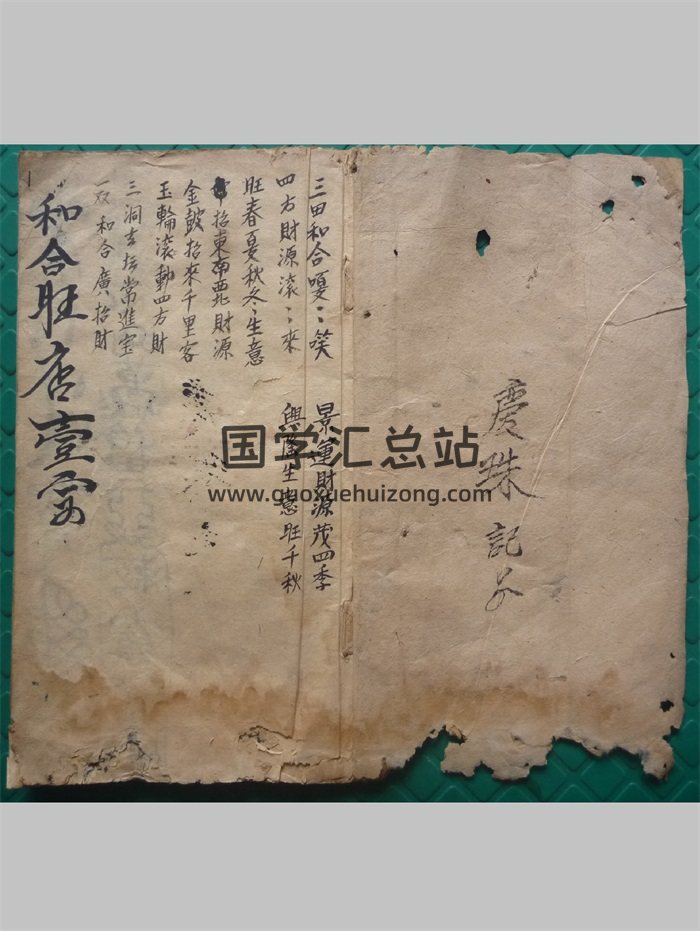 慶珠記
三田和合嗄〻笑
景運財源茂四季
四方財源滾〻來
生意旺千秋
旺春夏秋冬生意
招東南西北財源
金鼓招來千里客
玉輪滚動四方財
三洞玄坛常進宝
一双和合廣招財
和合旺店壹
国学汇总站
www.guoxuehuizong.com